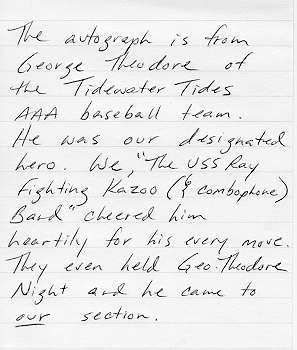 The autograph is from
George Theodore of
the Tidewater Tides
AAA baseball team.
He was our designated
hero. We, "The USS Ray
Fighting Kazoo (& combophone)
Band" cheered him
heartily for his every move.
They even held Geo. Theodore
Night and he came to
our section.